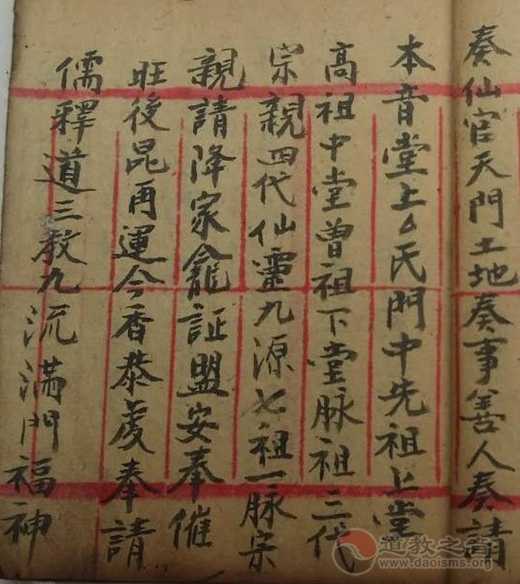 奏仙官天門土地奏事善人奏請
本音堂上厶氏門中先祖上堂
高祖中堂曽祖下堂脉祖三代
宗親四代仙靈九源七祖一脉宗
親請降家龕証盟安奉催
旺後昆再運今香恭虔奉請
儒釋道三教九流滿門福神
道教之音
www.daoisms.org